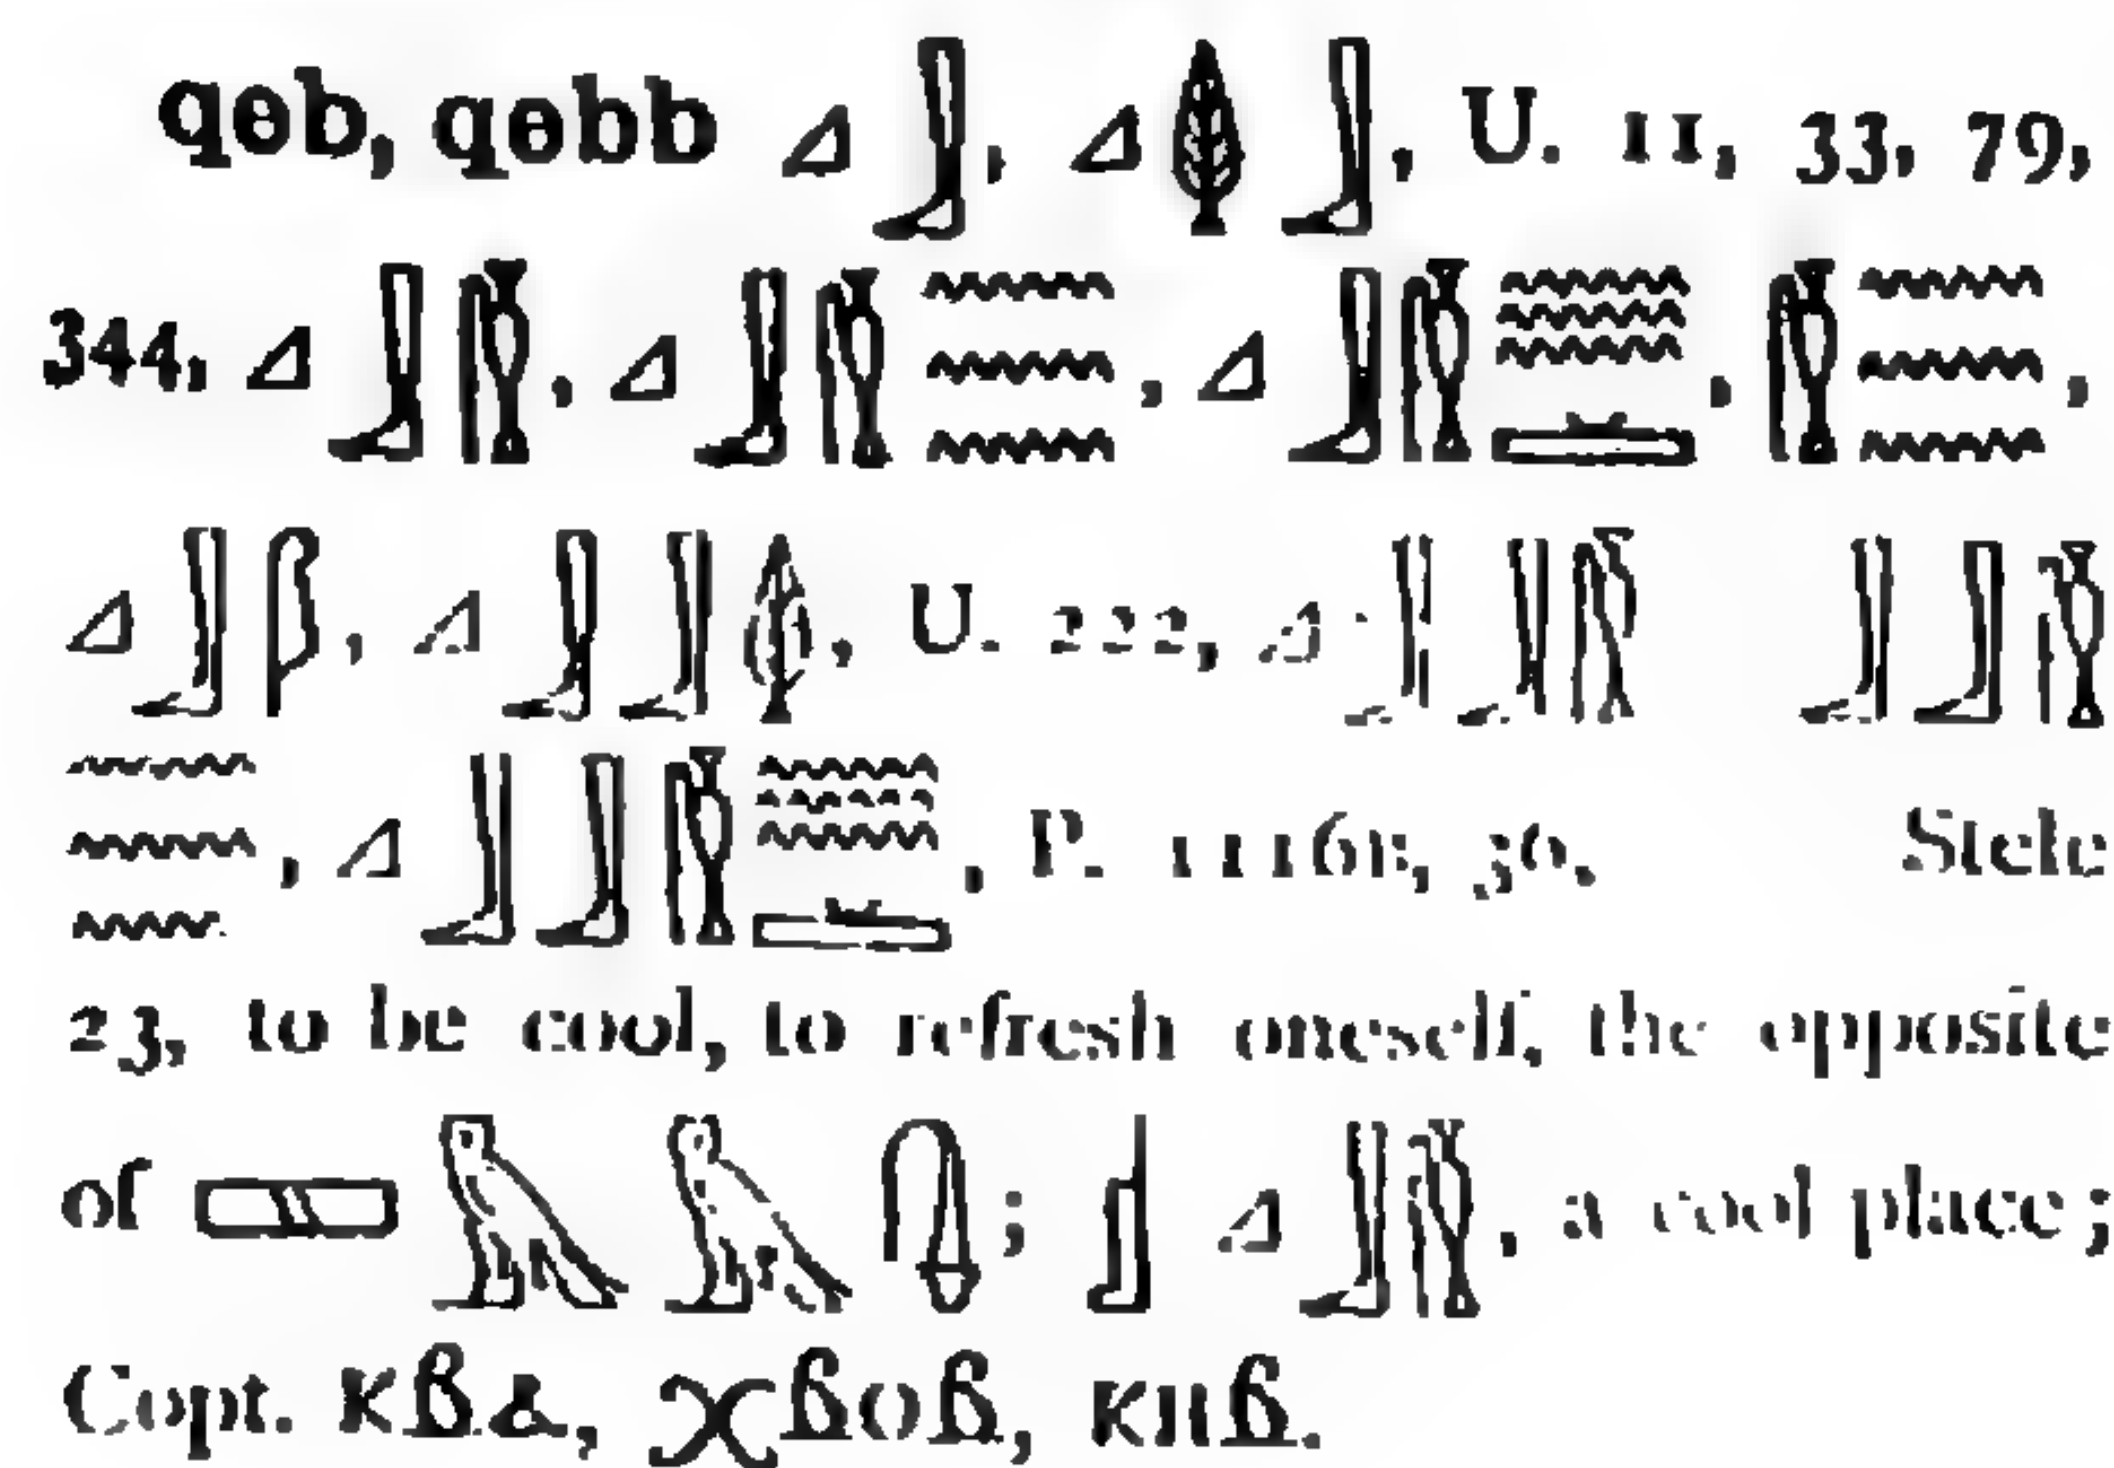 qeb, qebb 𓈎𓃀, 𓈎𓆭𓃀, U. 11, 33, 79,
344, 𓈎𓃀𓏁, 𓈎𓃀𓏁𓈗, 𓈎𓃀𓏁𓈗𓏛, 𓏁𓈗,
𓈎𓃀, 𓈎𓃀𓃀𓆭, U. 222, 𓈎𓃀𓃀𓏁 𓃀𓃀𓏁
𓈗, 𓈎𓃀𓃀𓏁𓈗𓏛, P. 1116B, 30, Stele
23, to be cool, to refresh oneself, the opposite
of 𓅓𓅓; 𓊨 𓈎𓃀𓏁, a cool place;
Copt. ⲕⲃⲁ, ⲭⲃⲟⲃ, ⲕⲏⲃ.